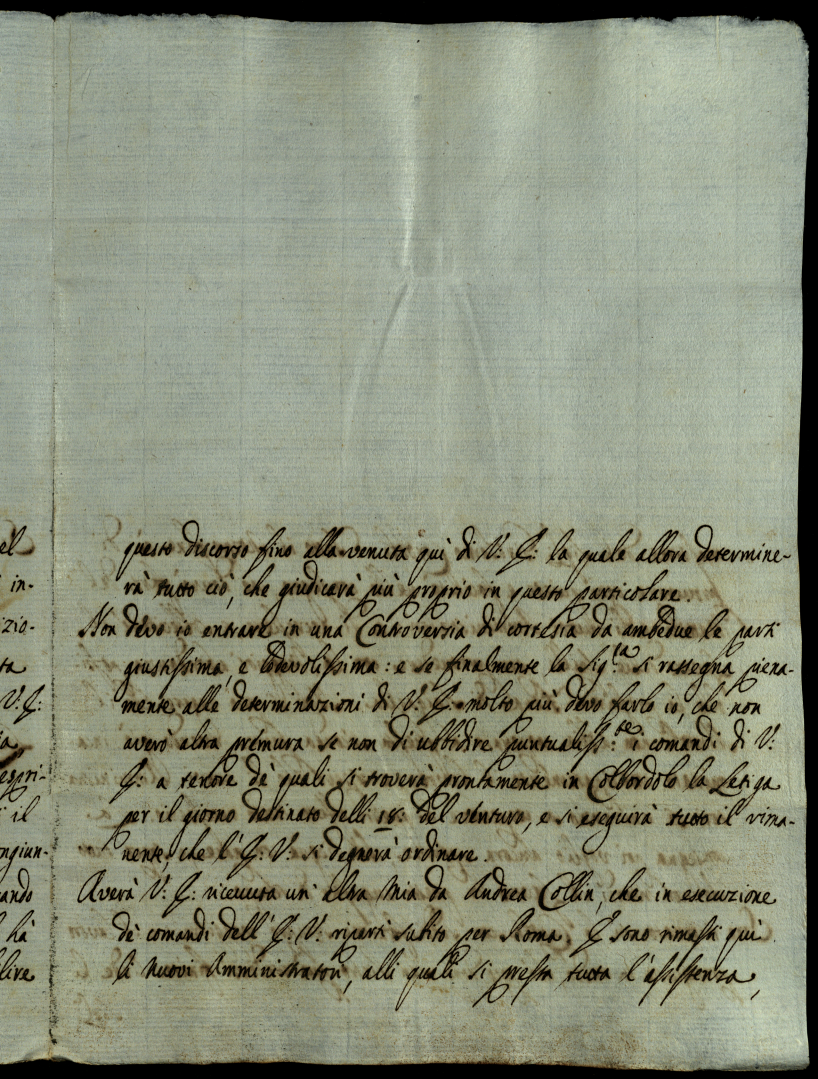 el
in-
zio-
ta
V: E:
espri-
i il
ongiun-
ando
hà
lire
questo discorso fino alla venuta quì di V: E: la quale allora determine-
rà tutto ciò, che giudicarà più proprio in questo particolare.
Non devo io entrare in una Controversia di cortesia da ambedue le parti
giustissima, e lodevolissima: e se finalmente la Sig.ra si rassegna piena-
mente alle determinazioni di V: E: molto più devo farlo io, che non
averò altra premura se non di ubbidire puntualiss:te i comandi di V:
E: a tenore dè quali si troverà prontamente in Colbordolo la Letiga
per il giorno destinato delli 18: del venturo, e si eseguirà tutto il rima-
nente, che l'E: V: si degnerà ordinare.
Averà V: E: ricevuta un' altra mia da Andrea Collin, che in esecuzione
dè comandi dell' E: V: ripartì subito per Roma. E sono rimasti quì
li nuovi Amministratori, alli quali si presta tutta l'assistenza,